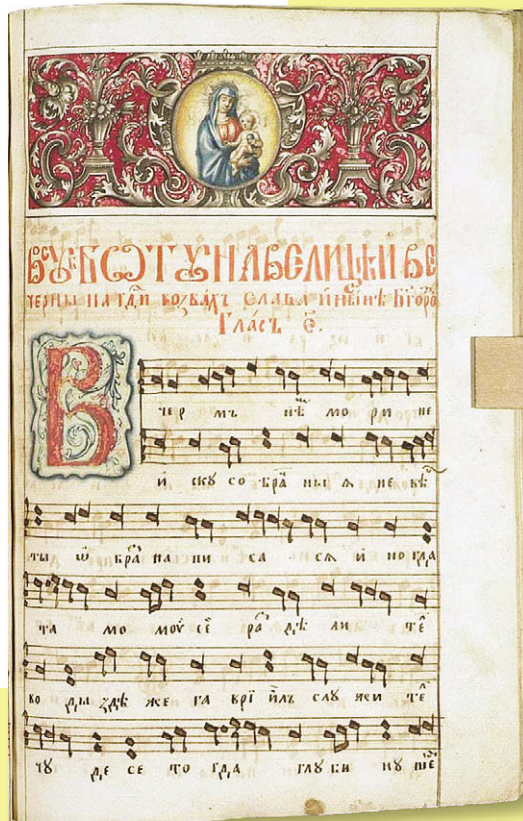 В сꙋбѡтꙋ на велицѣи ве
черни на гдⷭ҇и воззвахъ слава и нынѣ бгоро
Гласъ е҃.
В
чер мъ нѣⷨ мо ри не
и скꙋ со бра ны ѧ не вѣⷭ
ты ѡ браⷥ на пи са сѧ и но гда
та мо моѵ сеⷤ раⷥ дѣ ли теⷧ
во ды здѣ же га врї илъ слꙋ жи теⷧ
чꙋ де се то гда глꙋ би нꙋ